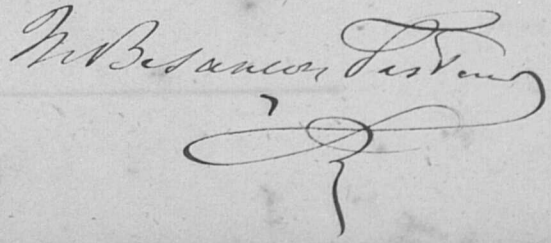 M Besancon Pasteur